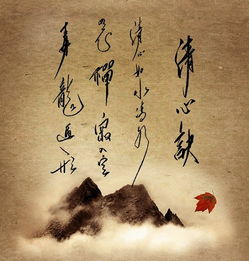 清心訣
清心如水清水
即心禪寂入定
毒龍遁形